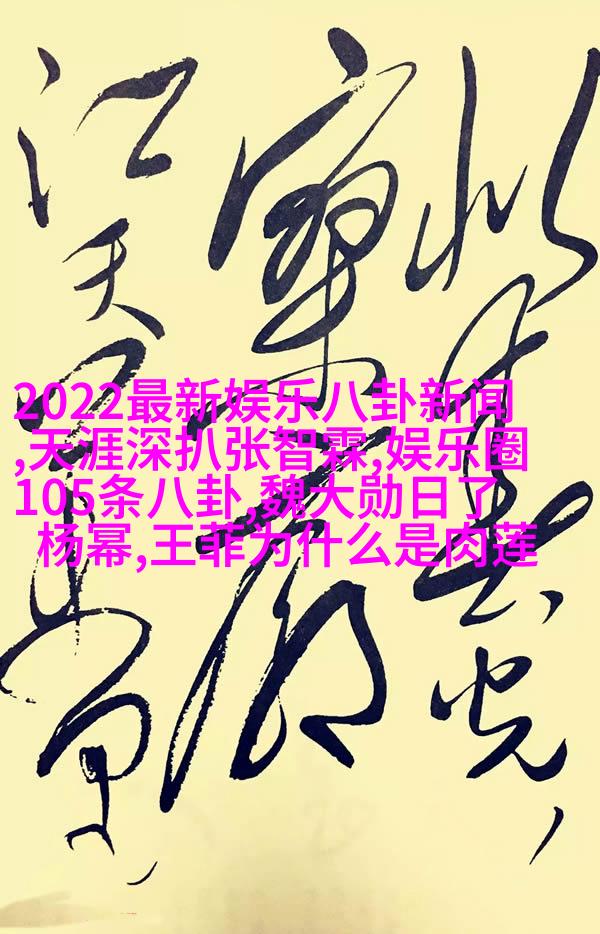 似春光,
寥廓
江天万里霜
2022最新娱乐八卦新闻
,天涯深扒张智霖,娱乐圈
105条八卦,魏大勋日了
杨幂,王菲为什么是肉莲